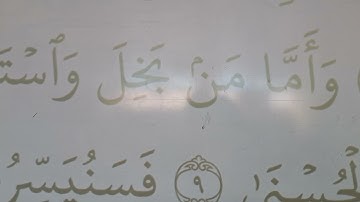 وَأَمَّا مَنۢ بَخِلَ وَٱسْتَ
لْحُسْنَىٰ ٩ فَسَنُيَسِّرُ